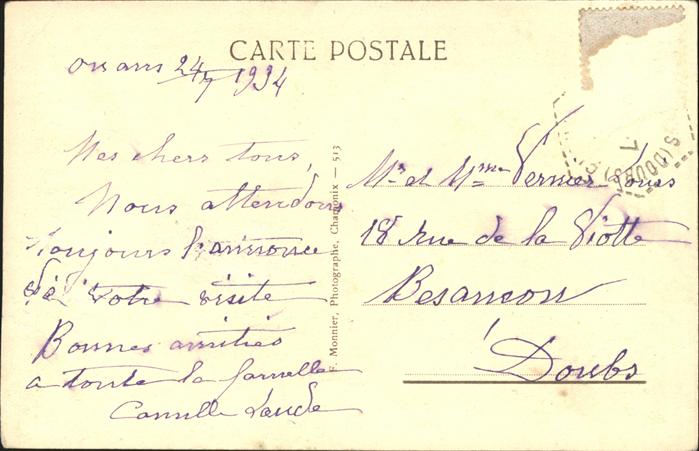 CARTE POSTALE
24/7 1934
Mes chers tous,
Nous attendons
Toujours l'annonce
votre visite
Bonnes amitiés
a toute la famille
Camille
F. Monnier, Photographe, Chamonix — 513
Mr et Mme Vernier Louis
18 rue de la Viotte
Besancon
Doubs
(DOUBS)